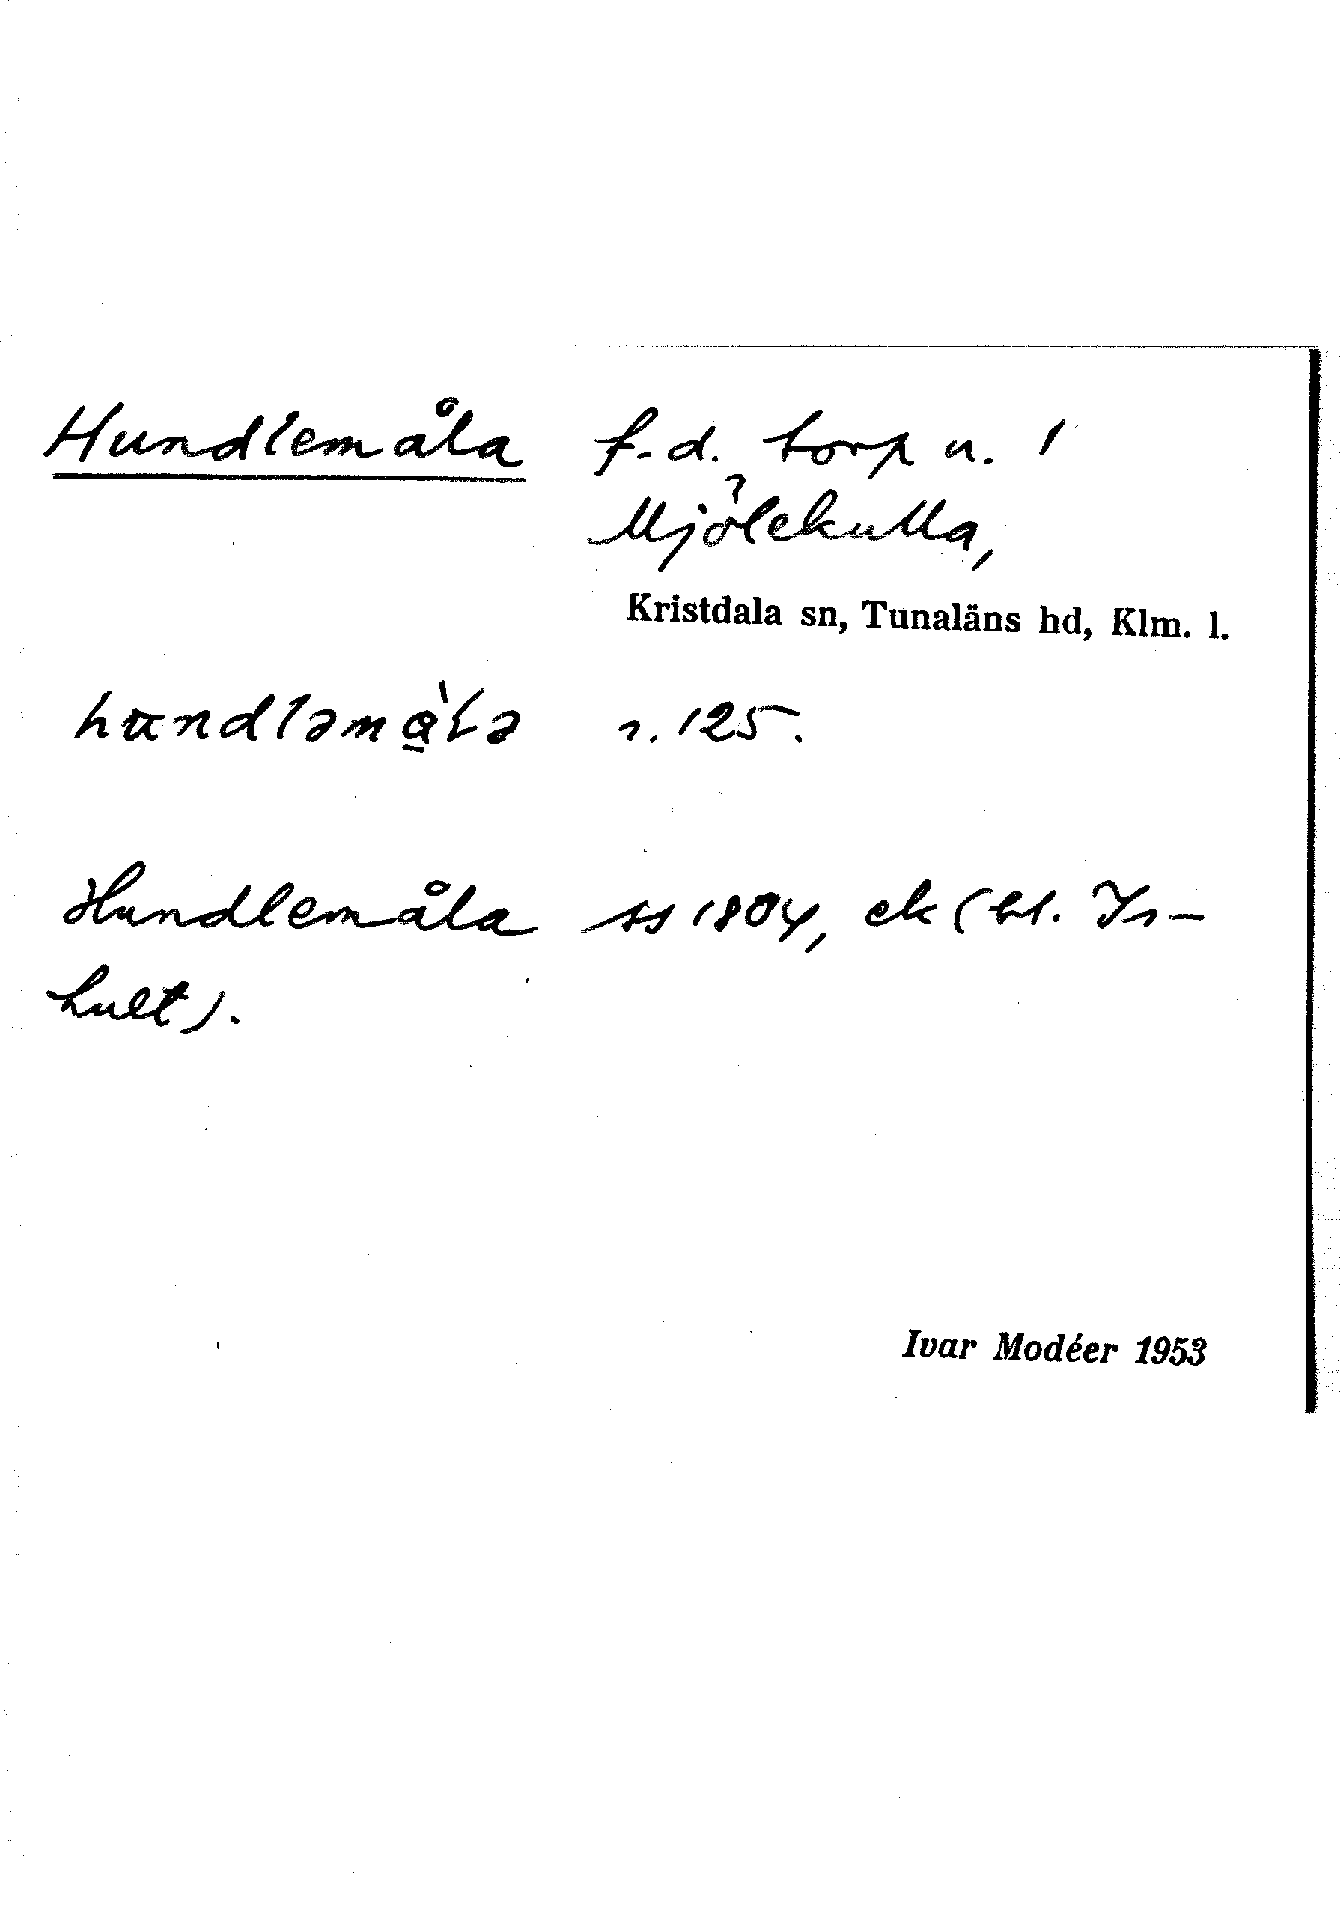 Hundlemåla f.d. torp u. 1
Mjölekulla,
Kristdala sn, Tunaläns hd, Klm. l.
hundləmàLə r. 125.
Hundlemåla ss 1804, ek (bl. Is-
hult).
Ivar Modéer 1953